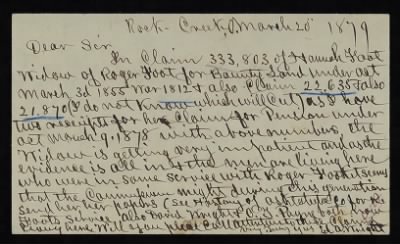 Rock-Creek, O, March 20 1879
Dear Sir,
In Claim 333,803, of Hannah Foot
Widow of Roger Foot for Bounty Land under act
March 3d 1855 War 1812 & also Claim 22,635 & also
21,870 (I do not know which will cut) as I have
two receipts for her Claim for Pension under
act March 9, 1878 with above numbers, the
Widow is getting very impatient and as the
evidence is all in & the men are living here
who were in same service with Roger Foot it seems
that the Commission might during this generation
send her her papers (see History of Ashtabula Co for R.
Foots Service also David Wright
living here. Will you